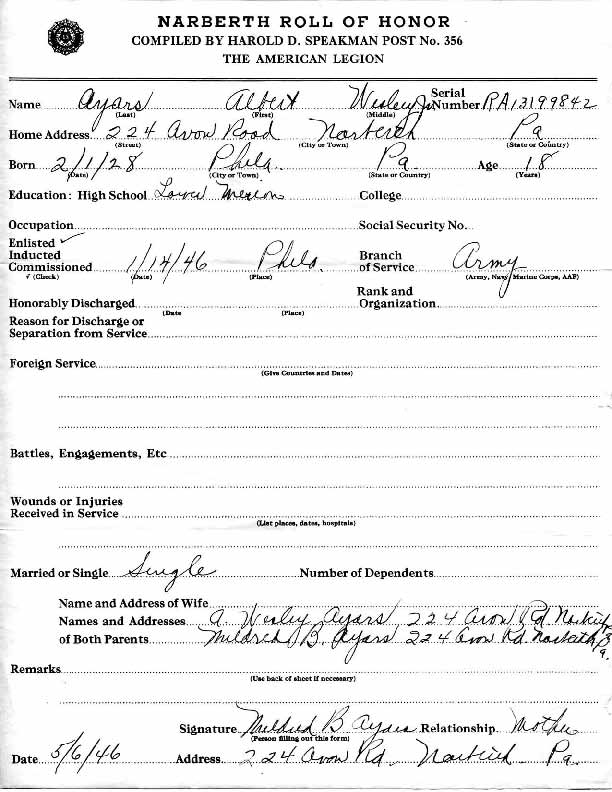 NARBERTH ROLL OF HONOR
COMPILED BY HAROLD D. SPEAKMAN POST No. 356
THE AMERICAN LEGION
Name Ayars Albert Wesley Jr Serial Number RA13199842
(Last) (First) (Middle)
Home Address 224 Avon Road Narberth Pa
(Street) (City or Town) (State or Country)
Born 2/1/28 Phila. Pa Age 18
(Date) (City or Town) (State or Country) (Years)
Education: High School Lower Merion College
Occupation Social Security No.
Enlisted ✓
Inducted Branch
Commissioned 1/14/46 Phila. of Service Army
✓ (Check) (Date) (Place) (Army, Navy, Marine Corps, AAF)
Rank and
Honorably Discharged Organization
(Date (Place)
Reason for Discharge or
Separation from Service
Foreign Service
(Give Countries and Dates)
Battles, Engagements, Etc
Wounds or Injuries
Received in Service
(List places, dates, hospitals)
Married or Single Single Number of Dependents
Name and Address of Wife
Names and Addresses A. Wesley Ayars 224 Avon Rd Narberth
of Both Parents Mildred B. Ayars 224 Avon Rd. Narberth Pa.
Remarks
(Use back of sheet if necessary)
Signature Mildred B Ayars Relationship Mother
(Person filling out this form)
Date 5/6/46 Address 224 Avon Rd. Narberth Pa.